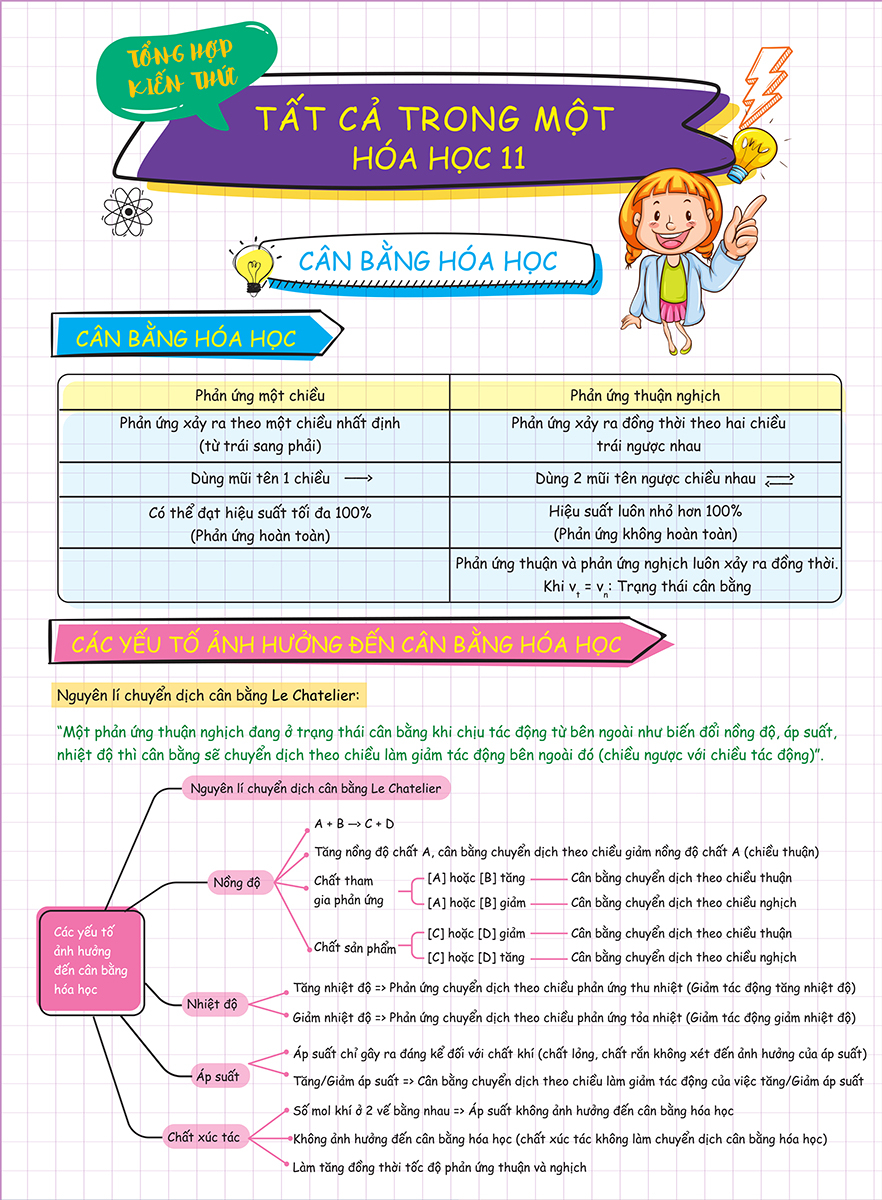 TỔNG HỢP
KIẾN THỨC
TẤT CẢ TRONG MỘT
HÓA HỌC 11
CÂN BẰNG HÓA HỌC
CÂN BẰNG HÓA HỌC
Phản ứng một chiều
Phản ứng thuận nghịch
Phản ứng xảy ra theo một chiều nhất định
(từ trái sang phải)
Phản ứng xảy ra đồng thời theo hai chiều
trái ngược nhau
Dùng mũi tên 1 chiều ⟶
Dùng 2 mũi tên ngược chiều nhau ⇌
Có thể đạt hiệu suất tối đa 100%
(Phản ứng hoàn toàn)
Hiệu suất luôn nhỏ hơn 100%
(Phản ứng không hoàn toàn)
Phản ứng thuận và phản ứng nghịch luôn xảy ra đồng thời.
Khi vt = vn: Trạng thái cân bằng
CÁC YẾU TỐ ẢNH HƯỞNG ĐẾN CÂN BẰNG HÓA HỌC
Nguyên lí chuyển dịch cân bằng Le Chatelier:
“Một phản ứng thuận nghịch đang ở trạng thái cân bằng khi chịu tác động từ bên ngoài như biến đổi nồng độ, áp suất,
nhiệt độ thì cân bằng sẽ chuyển dịch theo chiều làm giảm tác động bên ngoài đó (chiều ngược với chiều tác động)”.
Các yếu tố
ảnh hưởng
đến cân bằng
hóa học
Nguyên lí chuyển dịch cân bằng Le Chatelier
Nồng độ
A + B —> C + D
Tăng nồng độ chất A, cân bằng chuyển dịch theo chiều giảm nồng độ chất A (chiều thuận)
Chất tham
gia phản ứng
[A] hoặc [B] tăng
Cân bằng chuyển dịch theo chiều thuận
[A] hoặc [B] giảm
Cân bằng chuyển dịch theo chiều nghịch
Chất sản phẩm
[C] hoặc [D] giảm
Cân bằng chuyển dịch theo chiều thuận
[C] hoặc [D] tăng
Cân bằng chuyển dịch theo chiều nghịch
Nhiệt độ
Tăng nhiệt độ => Phản ứng chuyển dịch theo chiều phản ứng thu nhiệt (Giảm tác động tăng nhiệt độ)
Giảm nhiệt độ => Phản ứng chuyển dịch theo chiều phản ứng tỏa nhiệt (Giảm tác động giảm nhiệt độ)
Áp suất
Áp suất chỉ gây ra đáng kể đối với chất khí (chất lỏng, chất rắn không xét đến ảnh hưởng của áp suất)
Tăng/Giảm áp suất => Cân bằng chuyển dịch theo chiều làm giảm tác động của việc tăng/Giảm áp suất
Chất xúc tác
Số mol khí ở 2 vế bằng nhau => Áp suất không ảnh hưởng đến cân bằng hóa học
Không ảnh hưởng đến cân bằng hóa học (chất xúc tác không làm chuyển dịch cân bằng hóa học)
Làm tăng đồng thời tốc độ phản ứng thuận và nghịch